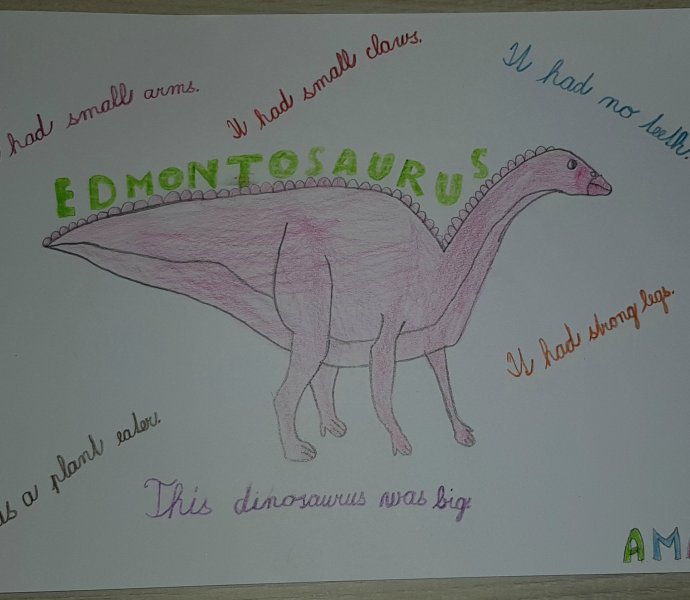 had small arms.
It had small claws.
It had no teeth.
EDMONTOSAURUS
It had strong legs.
a plant eater.
This dinosaurus was big.
AM